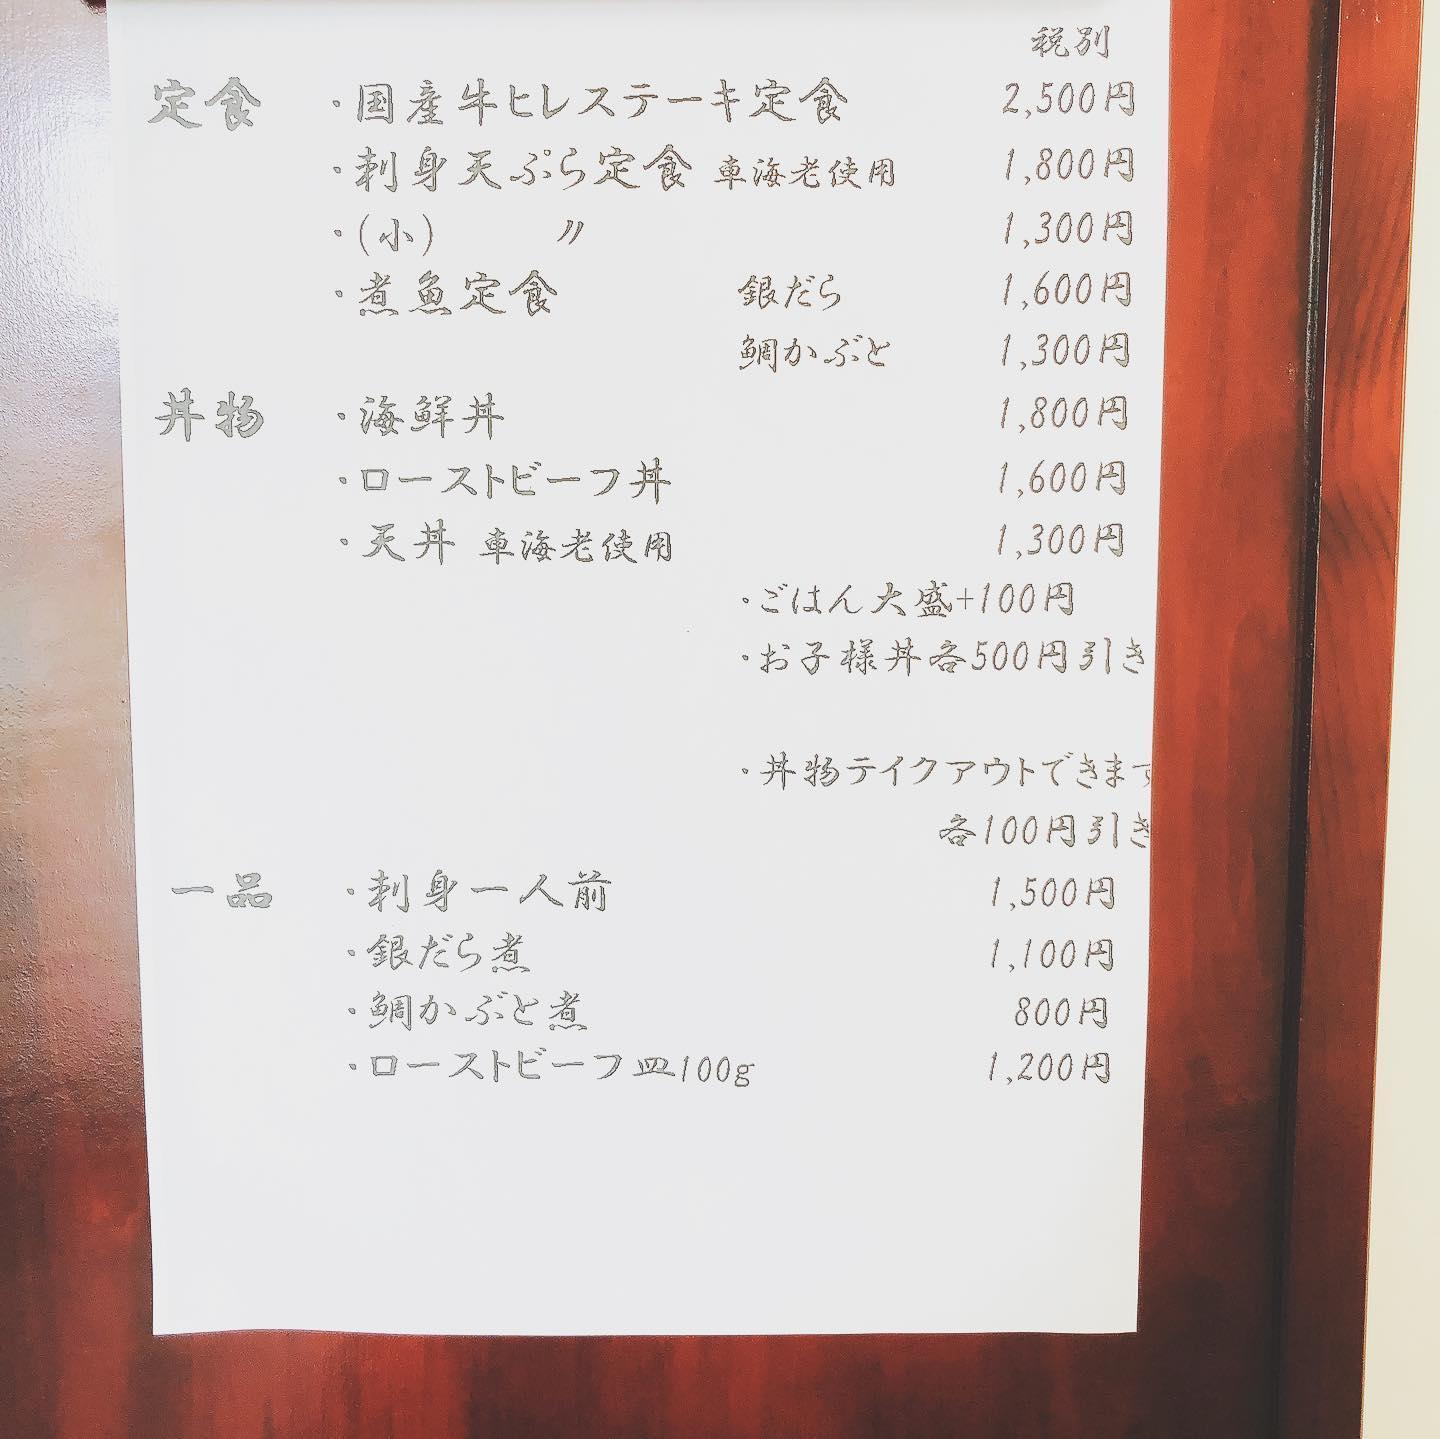 税別
定食 ・国産牛ヒレステーキ定食 2,500円
・刺身天ぷら定食 車海老使用 1,800円
・(小) 〃 1,300円
・煮魚定食 銀だら 1,600円
鯛かぶと 1,300円
丼物 ・海鮮丼 1,800円
・ローストビーフ丼 1,600円
・天丼 車海老使用 1,300円
・ごはん大盛+100円
・お子様丼各500円引き
・丼物テイクアウトできます
各100円引き
一品 ・刺身一人前 1,500円
・銀だら煮 1,100円
・鯛かぶと煮 800円
・ローストビーフ皿100g 1,200円